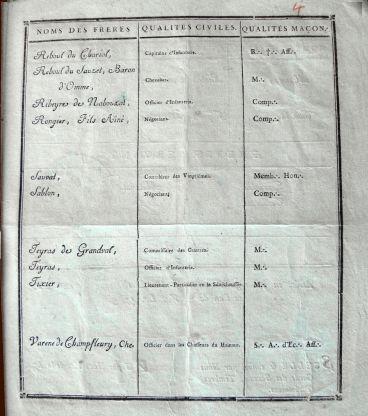 4
NOMS DES FRERES QUALITÉS CIVILES. QUALITÉS MAÇON∴
Reboul du Chariol, Capitaine d'Infanterie. R∴ †∴ Aff∴
Reboul du Sauzet, Baron
d'Omme, Chevalier. M∴
Ribeyre de Nabouzat, Officier d'Infanterie. Comp∴
Rongier, Fils Aîné, Négociant. Comp∴
Sauvat, Contrôleur des Vingtièmes. Memb∴ Hon∴
Sablon, Négociant. Comp∴
Teyras de Grandval, Commissaire des Guerres. M∴
Teyras, Officier d'Infanterie. M∴
Tixier, Lieutenant-Particulier en la Sénéchaussée. M∴
Varene de Champfleury, Che. Officier dans les Chasseurs du S∴ A∴ d'Ec∴ Aff∴